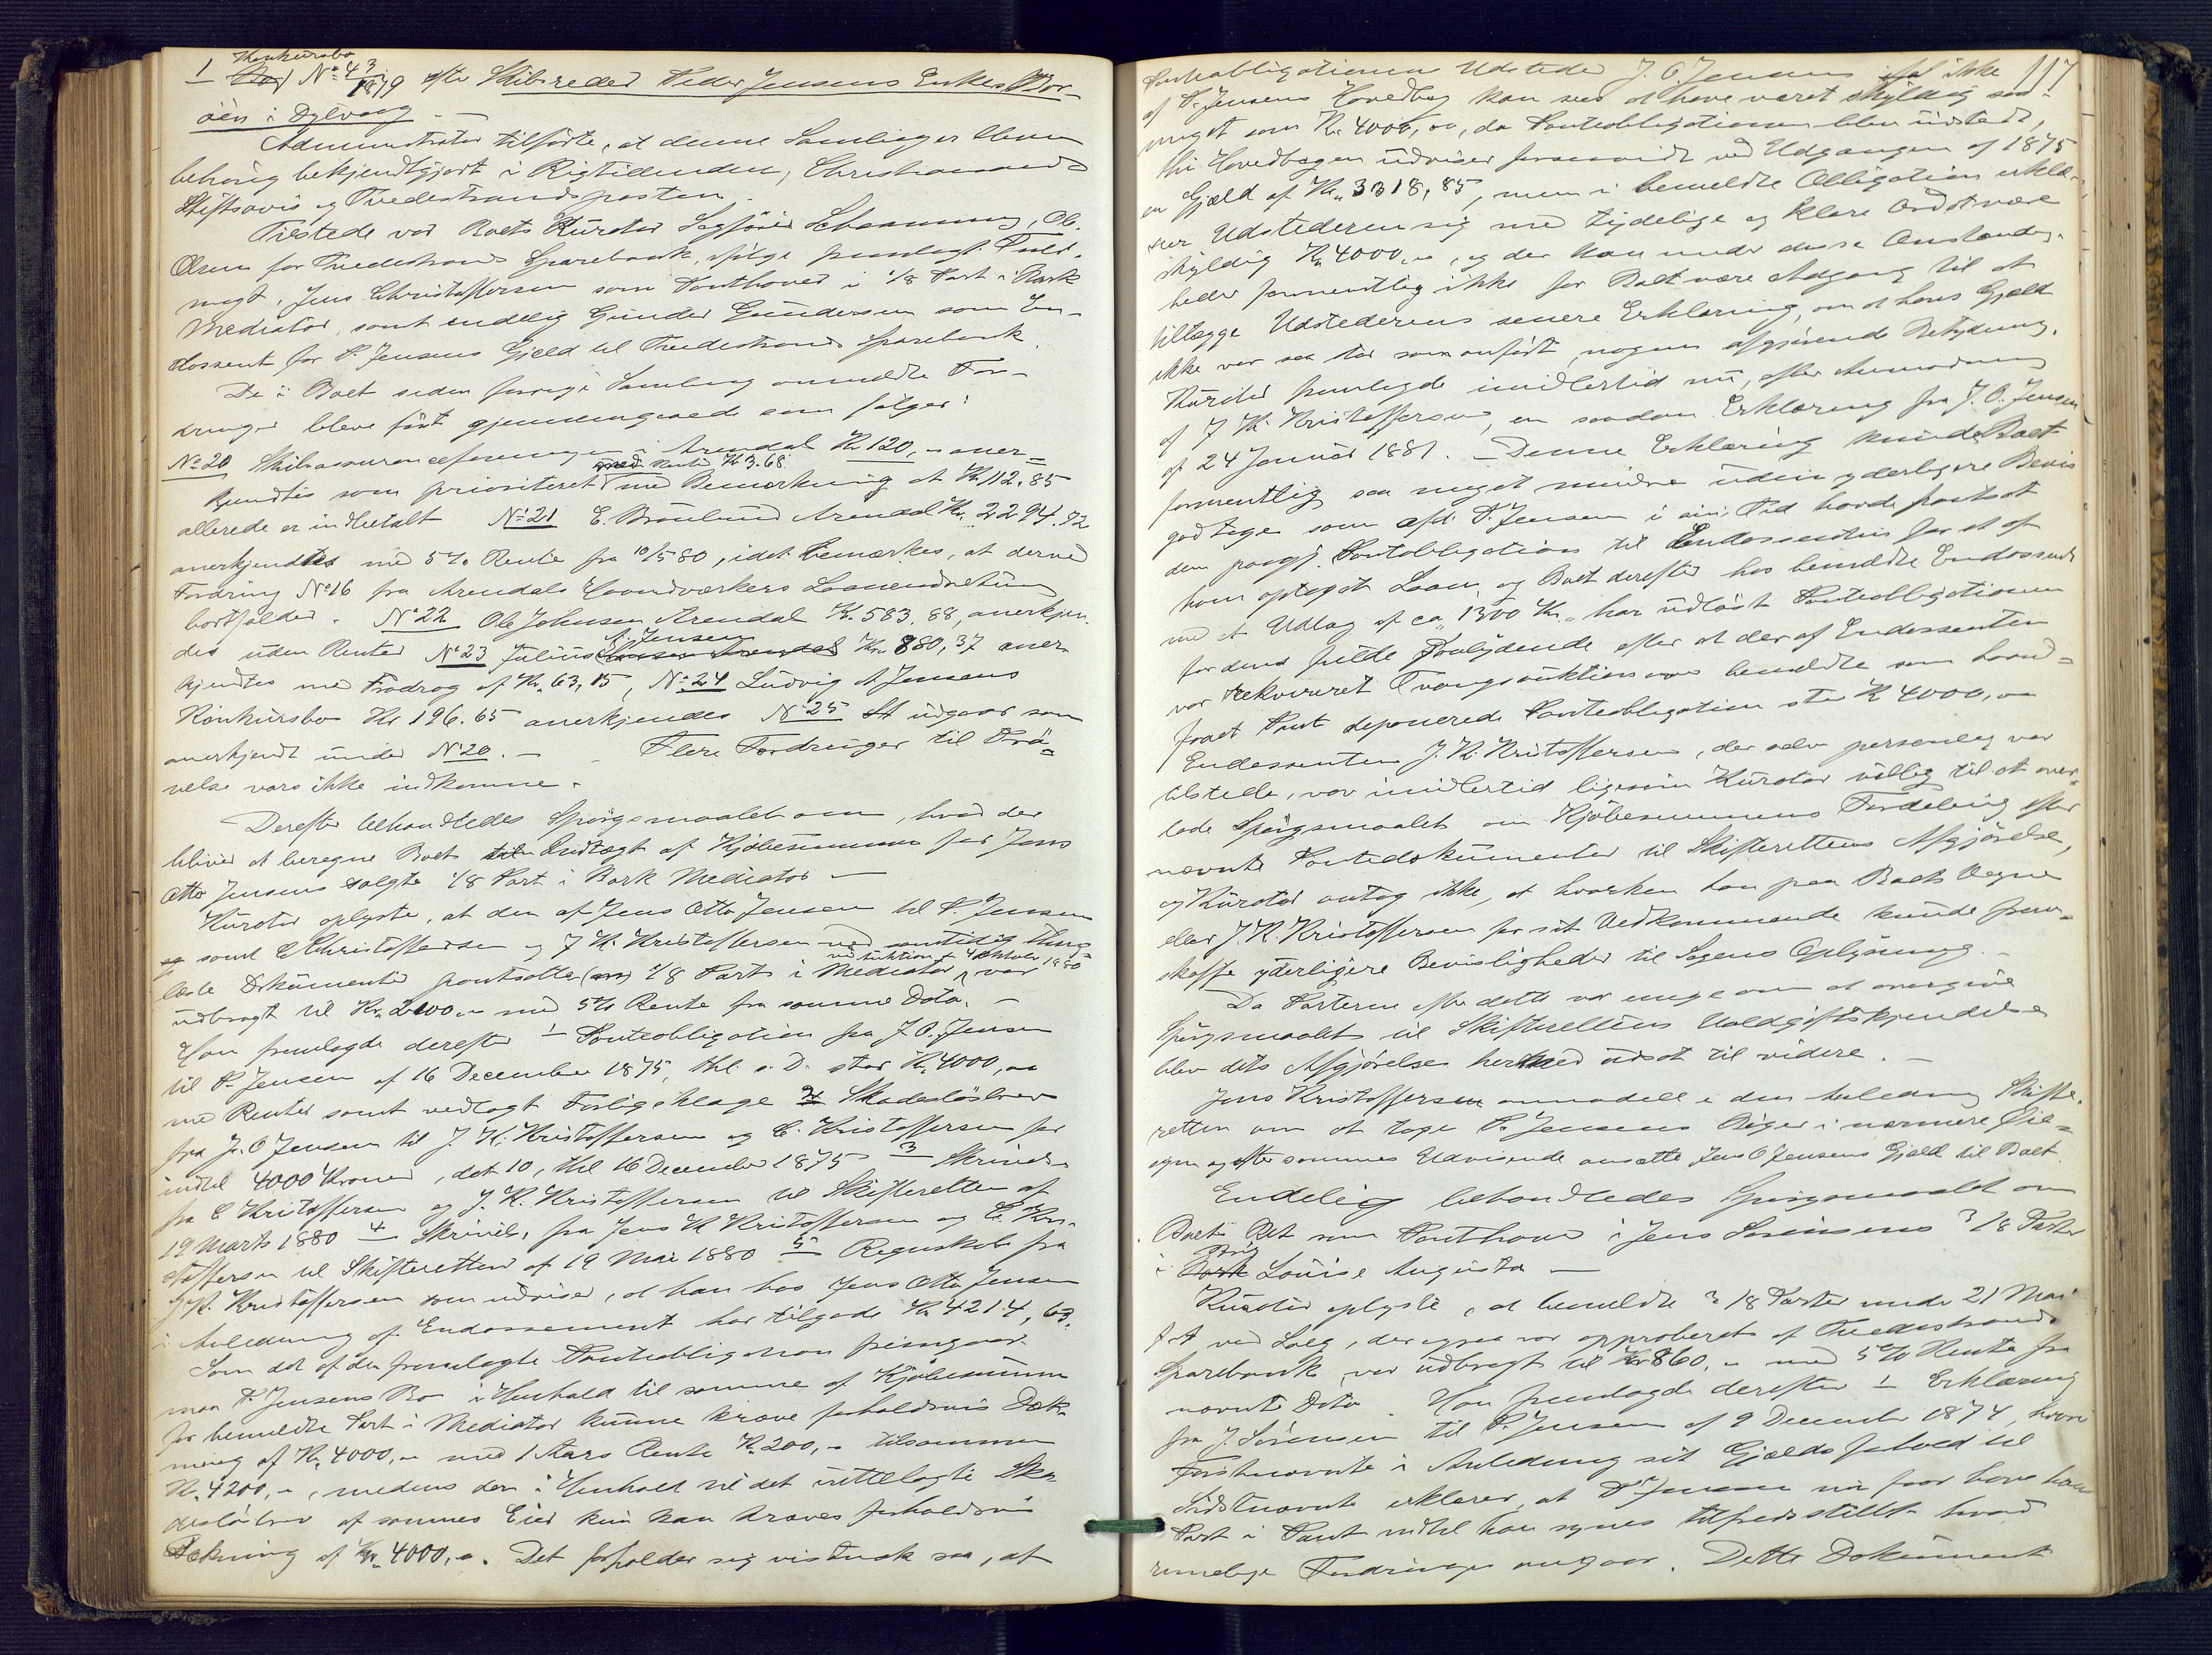 Konkursbo
1 No 43/1879 efter Skibsreder Peder Jensens Enkes Bor-
öén i Dybvaag. —
Administrator tilførte, at denne Samling er bleven
behørig bekjendtgjort i Rigstidenden, Christianssands
Stiftsavis og Tvedestrandsposten.
Tilstede var Boets Kurator Sagfører Schanning, Ole
Olsen for Tvedestrands Sparebank, ifølge fremlagt Fuld-
magt, Jens Christoffersen som Panthaver i 1/8 Part i Bark
Mediator, samt endelig Gunder Gundersen som En-
dossent for P. Jensens Gjæld til Tvedestrands Sparebank.
De i Boet siden forrige Samling anmeldte For-
dringer bleve først gjennemgaaede som følger:
No 20 Skibsassuranceforeningen i Arendal Kr 120,- aner-
med Rente Kr 3.68
kjendtes som prioriteret med Bemærkning at Kr. 112.85
allerede er indbetalt No 21 E. Brunlund Arendal Kr. 2294.72
anerkjendtes med 5% Rente fra 10/5 80, idet bemærkes, at derved
Fordring No 16 fra Arendals Haandværkers Laaneindretning
bortfalder. No 22 Ole Johnsen Arendal Kr. 583.88, anerkjen-
A. Jensen
des uden Renter No 23 Julius Kr. 880,37 aner-
kjendtes med Fradrag af Kr. 63,15, No 24 Ludvig A Jensens
Konkursbo Kr 196.65 anerkjendes No 25 At udgaar som
anerkjendt under No 20. — Flere Fordringer til Prø-
velse vare ikke indkomne.
Derefter behandledes Spørgsmaalet om, hvad der
bliver at beregne Boet til Indtægt af Kjøbesummen for Jens
Otto Jensens solgte 1/8 Part i Bark Mediator —
Kurator oplyste, at den af Jens Otto Jensen til P. Jensen
samt C Christoffersen og J K. Kristoffersen ved samtidig thing-
ved Auktion 4 Oktober 1880
læste Dokumenter pantsatte 1/8 Part i Mediator var
udbragt til Kr. 2100,- med 5% Rente fra samme Dato. —
Han fremlagde derefter 1 Panteobligation fra J. O. Jensen
til P. Jensen af 16 December 1875, thl. s. D. stor Kr. 4000,00
med Renter samt vedlagt Forligsklage 2 Skadesløsbrev
fra J. O Jensen til J K. Kristoffersen og C. Kristoffersen for
indtil 4000 Kroner, dat 10, thl 16 December 1875 3 Skrivelse
fra C Kristoffersen og J. K. Kristoffersen til Skifteretten af
19 Marts 1880 4 Skrivelse fra Jens K Kristoffersen og C. Kri-
stoffersen til Skifteretten af 19 Mai 1880 5 Regnskab fra
J K. Kristoffersen som udviser, at han hos Jens Otto Jensen
i Anledning af Endossement har tilgode Kr. 4214,63.
Som det af den fremlagte Panteobligation fremgaar
maa P Jensens Bo i Henhold til samme af Kjøbesummen
for bemeldte Part i Mediator kunne kræve forholdsvis Dæk-
ning af Kr. 4000,- med 1 Aars Rente Kr. 200,- tilsammen
Kr. 4200,-, medens der i Henhold til det irettelagte Ska-
desløsbrev af sammes Eier kun kan kræves forholdsvis
Dækning af Kr. 4000,-. Det forholder sig vistnok saa, at
117
Panteobligationens Udsteder J. O. Jensen ikke
af P. Jensens Hovedbog kan sees at have været skyldig saa-
meget som Kr. 4000,00, da Panteobligationen blev udstedt,
thi Hovedbogen udviser forsaavidt ved Udgangen af 1875
en Gjæld af Kr. 3318,85, men i bemeldte Obligation erklæ-
rer Udstederen sig med tydelige og klare Ord at være
skyldig Kr 4000,-, og der kan under disse Omstændig-
heder formentlig ikke for Boet være Adgang til at
tillægge Udstederens senere Erklæring, om at hans Gjæld
ikke var saa stor som anført, nogen afgjørende Betydning.
Kurator fremlagde imidlertid nu, efter Anmodning
af J K. Kristoffersen, en saadan Erklæring fra J. O. Jensen
af 24 Januar 1881. — Denne Erklæring kunde Boet
formentlig saa meget mindre uden yderligere Bevis
godtage som afd. P. Jensen i sin Tid havde pantsat
den paagj. Panteobligation til Endossenten for et af
ham optaget Laan, og Boet derefter hos bemeldte Endossent
med et Udlæg af ca 1300 Kr. har udløst Panteobligationen
for dens fulde Paalydende efter at der af Endossenten
var rekvireret Tvangsauktion over bemeldte som haand-
faaet Pant deponerede Panteobligation stor Kr 4000,00
Endossenten J. K. Kristoffersen, der selv personlig var
tilstede, var imidlertid ligesom Kurator villig til at over-
lade Spørgsmaalet om Kjøbesummens Fordeling efter
nævnte Pantedokumenter til Skifterettens Afgjørelse,
og Kurator antog ikke, at hverken han paa Boets Vegne
eller J. K. Kristoffersen for sit Vedkommende kunde frem-
skaffe yderligere Bevisligheder til Sagens Oplysning. —
Da Parterne efter dette var enige om at overgive
Spørgsmaalet til Skifterettens Voldgiftskjendelse
blev dets Afgjørelse hermed udsat til videre. —
Jens Kristoffersen anmodede i den Anledning Skifte-
retten om at tage P. Jensens Bøger i nærmere Øie-
syn og efter sammes Udvisende ansætte Jens O Jensens Gjæld til Boet.
Endelig behandledes Spørgsmaalet om
Boets Ret som Panthaver i Jens Sørensens 3/18 Parter
Brig
i Louise Augusta —
Kurator oplyste, at bemeldte 3/18 Parter under 21 Mai
f A ved Salg, der ogsaa var approberet af Tvedestrands
Sparebank, var udbragt til Kr 860,- med 5% Rente fra
nævnte Dato. Han fremlagde derefter 1 Erklæring
fra J. Sørensen til P. Jensen af 9 December 1874, hvori
Førstnævnte i Anledning sit Gjældsforhold til
Sidstnævnte erklærer, at P Jensen nu faar have hans
Part i Pant indtil han synes tilfredsstillet hvad
rimelige Fordringer angaar. Dette Dokument